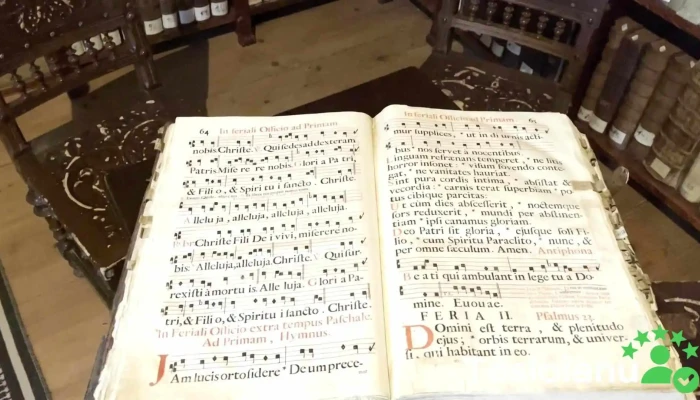 64 In feriali Officio ad Primam
nobis. Christe. V. Qui sedes ad dexteram
Patris Mise re re nobis. Glori a Patri,
& Fili o, & Spiri tu i sancto. Christe.
Alleluja, alleluja, alleluja, alleluja.
Christe Fili De i vivi, miserere no-
bis. Alleluja, alleluja. Christe. V. Qui sur-
rexisti a mortu is Alle luja. Glori a Pa-
tri, & Fili o, & Spiritu i sancto. Christe.
In Feriali Officio extra tempus Paschale.
Ad Primam, Hymnus.
JAm lucis orto sidere * Deum prece-
In feriali Officio ad Primam 65
mur supplices, * ut in diurnis acti-
bus * nos servet a nocentibus.
Linguam refrænans temperet, * ne litis
horror insonet: * visum fovendo conte-
gat, * ne vanitates hauriat.
Sint pura cordis intima, * absistat &
vecordia: * carnis terat superbiam * po-
tus cibique parcitas:
Ut cùm dies abscesserit, * noctemque
sors reduxerit, * mundi per abstinen-
tiam * ipsi canamus gloriam.
Deo Patri sit gloria, * ejusque soli Fi-
lio, * cum Spiritu Paraclito, * nunc, &
per omne sæculum. Amen. Antiphona.
Be a ti qui ambulant in lege tu a Do
mine. Euouae.
FERIA II. Psalmus 23.
DOmini est terra, & plenitudo
ejus; * orbis terrarum, & univer-
si, qui habitant in eo.